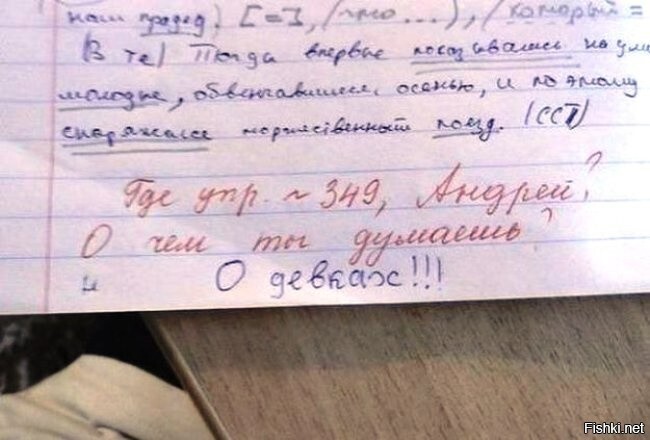 наш прадед, [–], (что...), (который =
(В те) Тогда впервые показывались на ули
молодые, обвенчавшиеся осенью, и по этому
снаряжался торжественный поезд. (ССП)
Где упр. ~ 349, Андрей?
О чем ты думаешь?
О девках!!!
Fishki.net